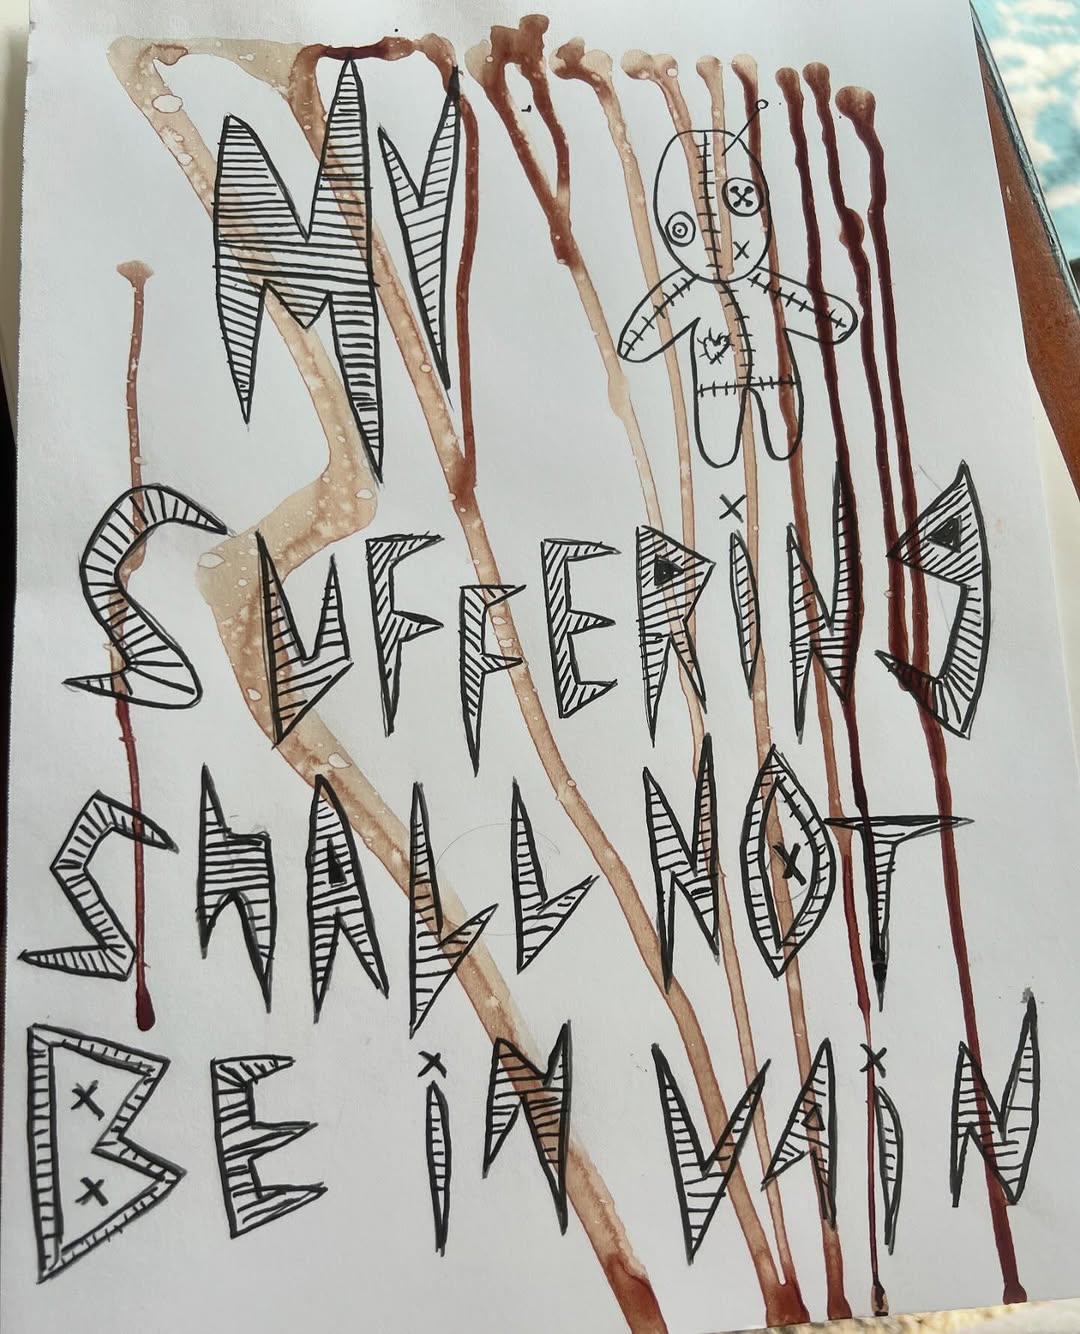 MY
SUFFERiNg
ShALL NOT
BE iN VAiN